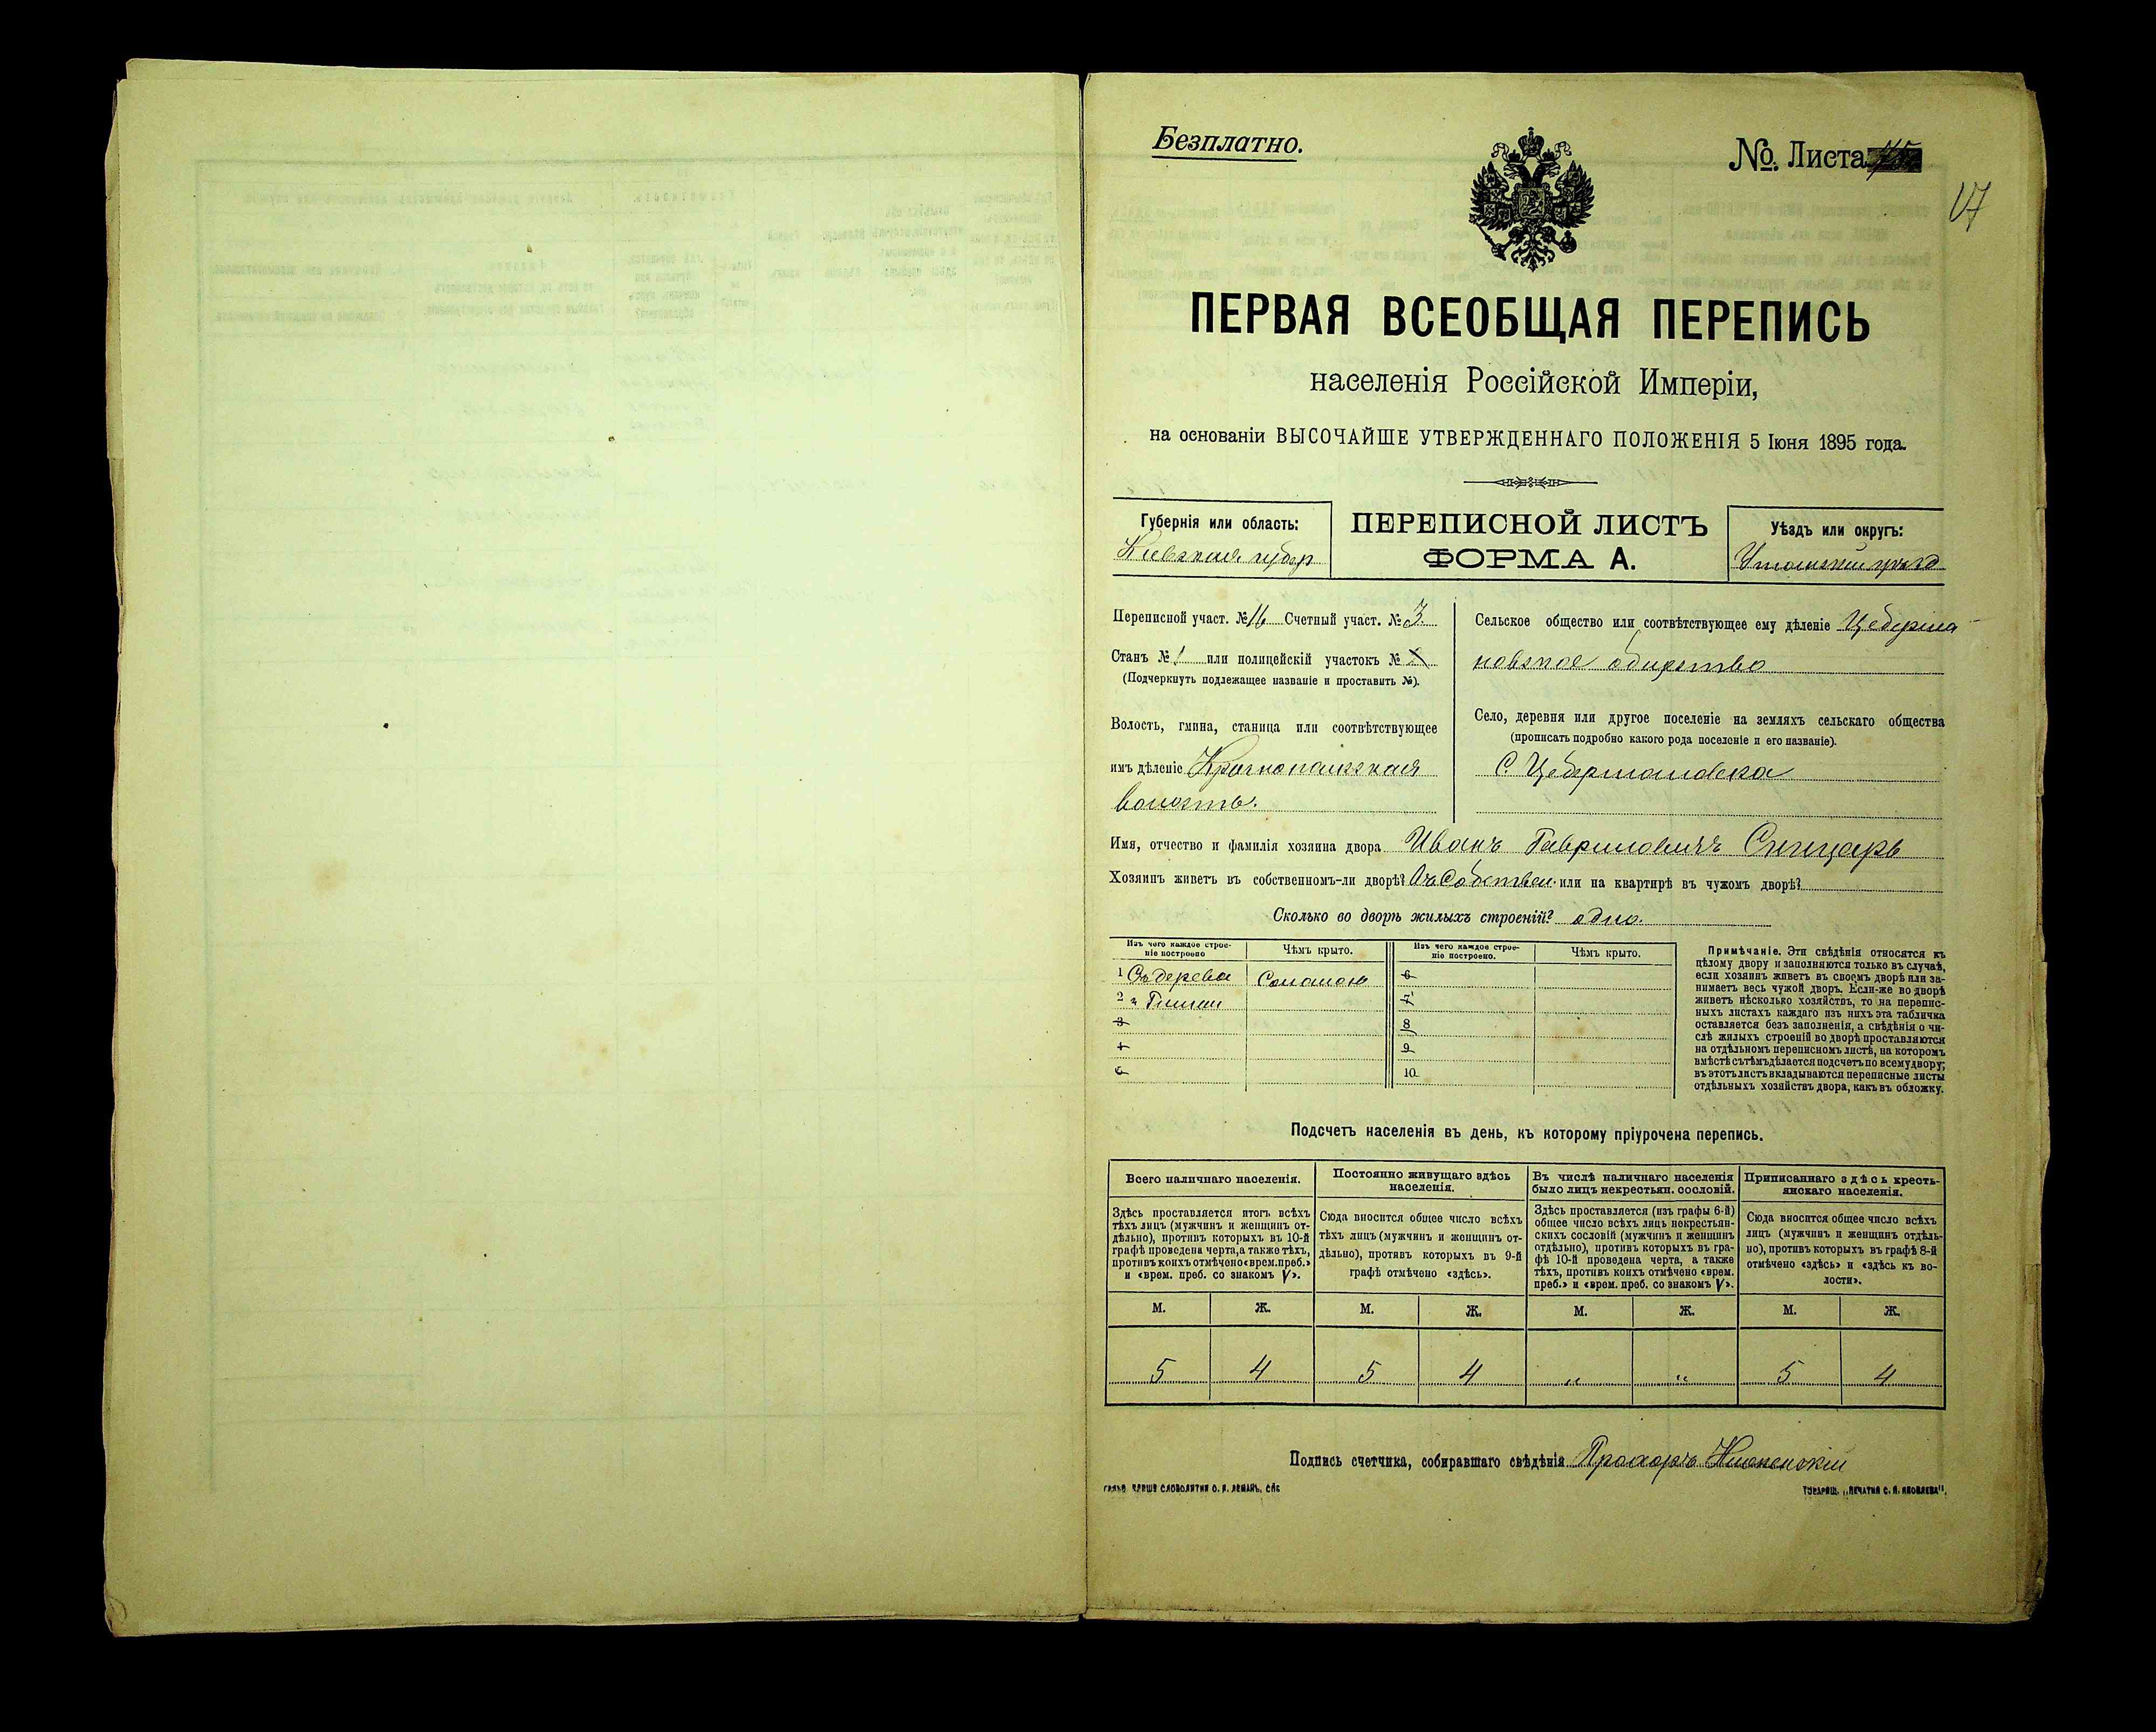 Безплатно.
№ Листа
17
ПЕРВАЯ ВСЕОБЩАЯ ПЕРЕПИСЬ
населенія Россійской Имперіи,
на основаніи ВЫСОЧАЙШЕ УТВЕРЖДЕННАГО ПОЛОЖЕНІЯ 5 Іюня 1895 года.
Губернія или область:
Кіевская губер
ПЕРЕПИСНОЙ ЛИСТЪ
ФОРМА А.
Уѣздъ или округъ:
Уманскій уѣзд
Переписной участ. № 16 Счетный участ. № 3.
Станъ № 1 или полицейскій участокъ №
(Подчеркнуть подлежащее названіе и проставить №).
Волость, гмина, станица или соотвѣтствующее
имъ дѣленіе Краснопольская
волость.
Сельское общество или соотвѣтствующее ему дѣленіе Цеберма
новское общество
Село, деревня или другое поселеніе на земляхъ сельскаго общества
(прописать подробно какого рода поселеніе и его названіе).
С. Цебермановска
Имя, отчество и фамилія хозяина двора Иванъ Гавриловичъ Снецарь
Хозяинъ живетъ въ собственномъ-ли дворѣ? Въ Собствен. или на квартирѣ въ чужомъ дворѣ?
Сколько во дворѣ жилыхъ строеній? одно.
Изъ чего каждое строе-
ніе построено
Чѣмъ крыто.
Изъ чего каждое строе-
ніе построено.
Чѣмъ крыто.
1 Съ дерева Соломою
2 и Глины
3
4
5
6
7
8
9
10
Примѣчаніе. Эти свѣдѣнія относятся къ
цѣлому двору и заполняются только въ случаѣ,
если хозяинъ живетъ въ своемъ дворѣ или за-
нимаетъ весь чужой дворъ. Если-же во дворѣ
живетъ нѣсколько хозяйствъ, то на перепис-
ныхъ листахъ каждаго изъ нихъ эта табличка
оставляется безъ заполненія, а свѣдѣнія о чи-
слѣ жилыхъ строеній во дворѣ проставляются
на отдѣльномъ переписномъ листѣ, на которомъ
вмѣстѣ съ тѣмъ дѣлается подсчетъ по всему двору;
въ этотъ листъ вкладываются переписные листы
отдѣльныхъ хозяйствъ двора, какъ въ обложку.
Подсчетъ населенія въ день, къ которому пріурочена перепись.
Всего наличнаго населенія.
Здѣсь проставляется итогъ всѣхъ
тѣхъ лицъ (мужчинъ и женщинъ от-
дѣльно), противъ которыхъ въ 10-й
графѣ проведена черта, а также тѣхъ,
противъ коихъ отмѣчено «врем. преб.»
и «врем. преб. со знакомъ V».
Постоянно живущаго здѣсь
населенія.
Сюда вносится общее число всѣхъ
тѣхъ лицъ (мужчинъ и женщинъ от-
дѣльно), противъ которыхъ въ 9-й
графѣ отмѣчено «здѣсь».
Въ числѣ наличнаго населенія
было лицъ некрестьян. сословій.
Здѣсь проставляется (изъ графы 6-й)
общее число всѣхъ лицъ некрестьян-
скихъ сословій (мужчинъ и женщинъ
отдѣльно), противъ которыхъ въ гра-
фѣ 10-й проведена черта, а также
тѣхъ, противъ коихъ отмѣчено «врем.
преб.» и «врем. преб. со знакомъ V».
Приписаннаго здѣсь кресть-
янскаго населенія.
Сюда вносится общее число всѣхъ
лицъ (мужчинъ и женщинъ отдѣль-
но), противъ которыхъ въ графѣ 8-й
отмѣчено «здѣсь» и «здѣсь къ во-
лости».
М. Ж. М. Ж. М. Ж. М. Ж.
5 4 5 4 „ „ 5 4
Подпись счетчика, собиравшаго свѣдѣнія Прохоръ
СЛОВОЛИТНИ О. И. ЛЕМАНЪ, СПБ
ТОВАРИЩ. „ПЕЧАТНЯ С. П. ЯКОВЛЕВА".